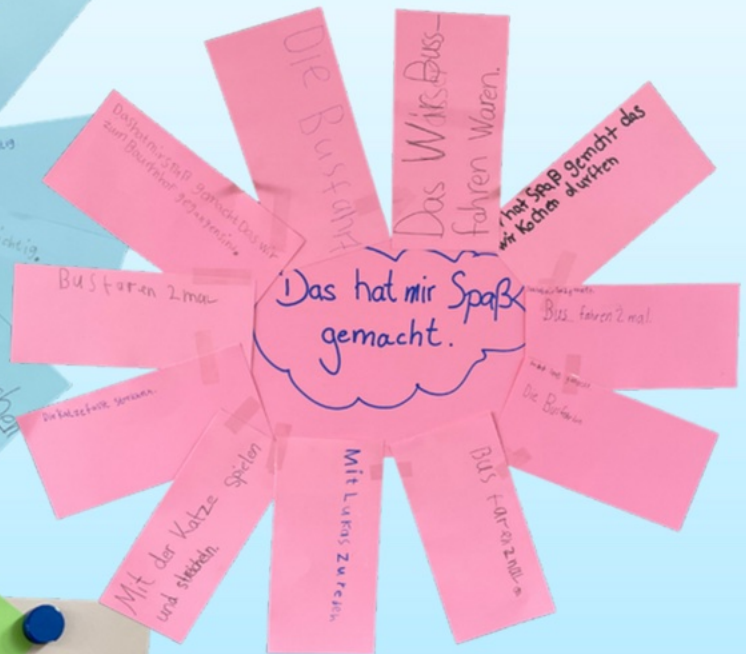 Das hat mir Spaß
gemacht.
Die Busfahrt
Das Wir Buss-
fahren Waren.
hat Spaß gemcht das
wir kochen durften
Bus fahren 2 mal.
Die Busfaren
Bus faren 2 mal.
Mit Lukas zu reden
Mit der Katze spielen
und streicheln.
Die Katze
Bus faren 2 mal
Das hat mir spaß gemacht Das wir
zum Bauernhof gegangen sind.